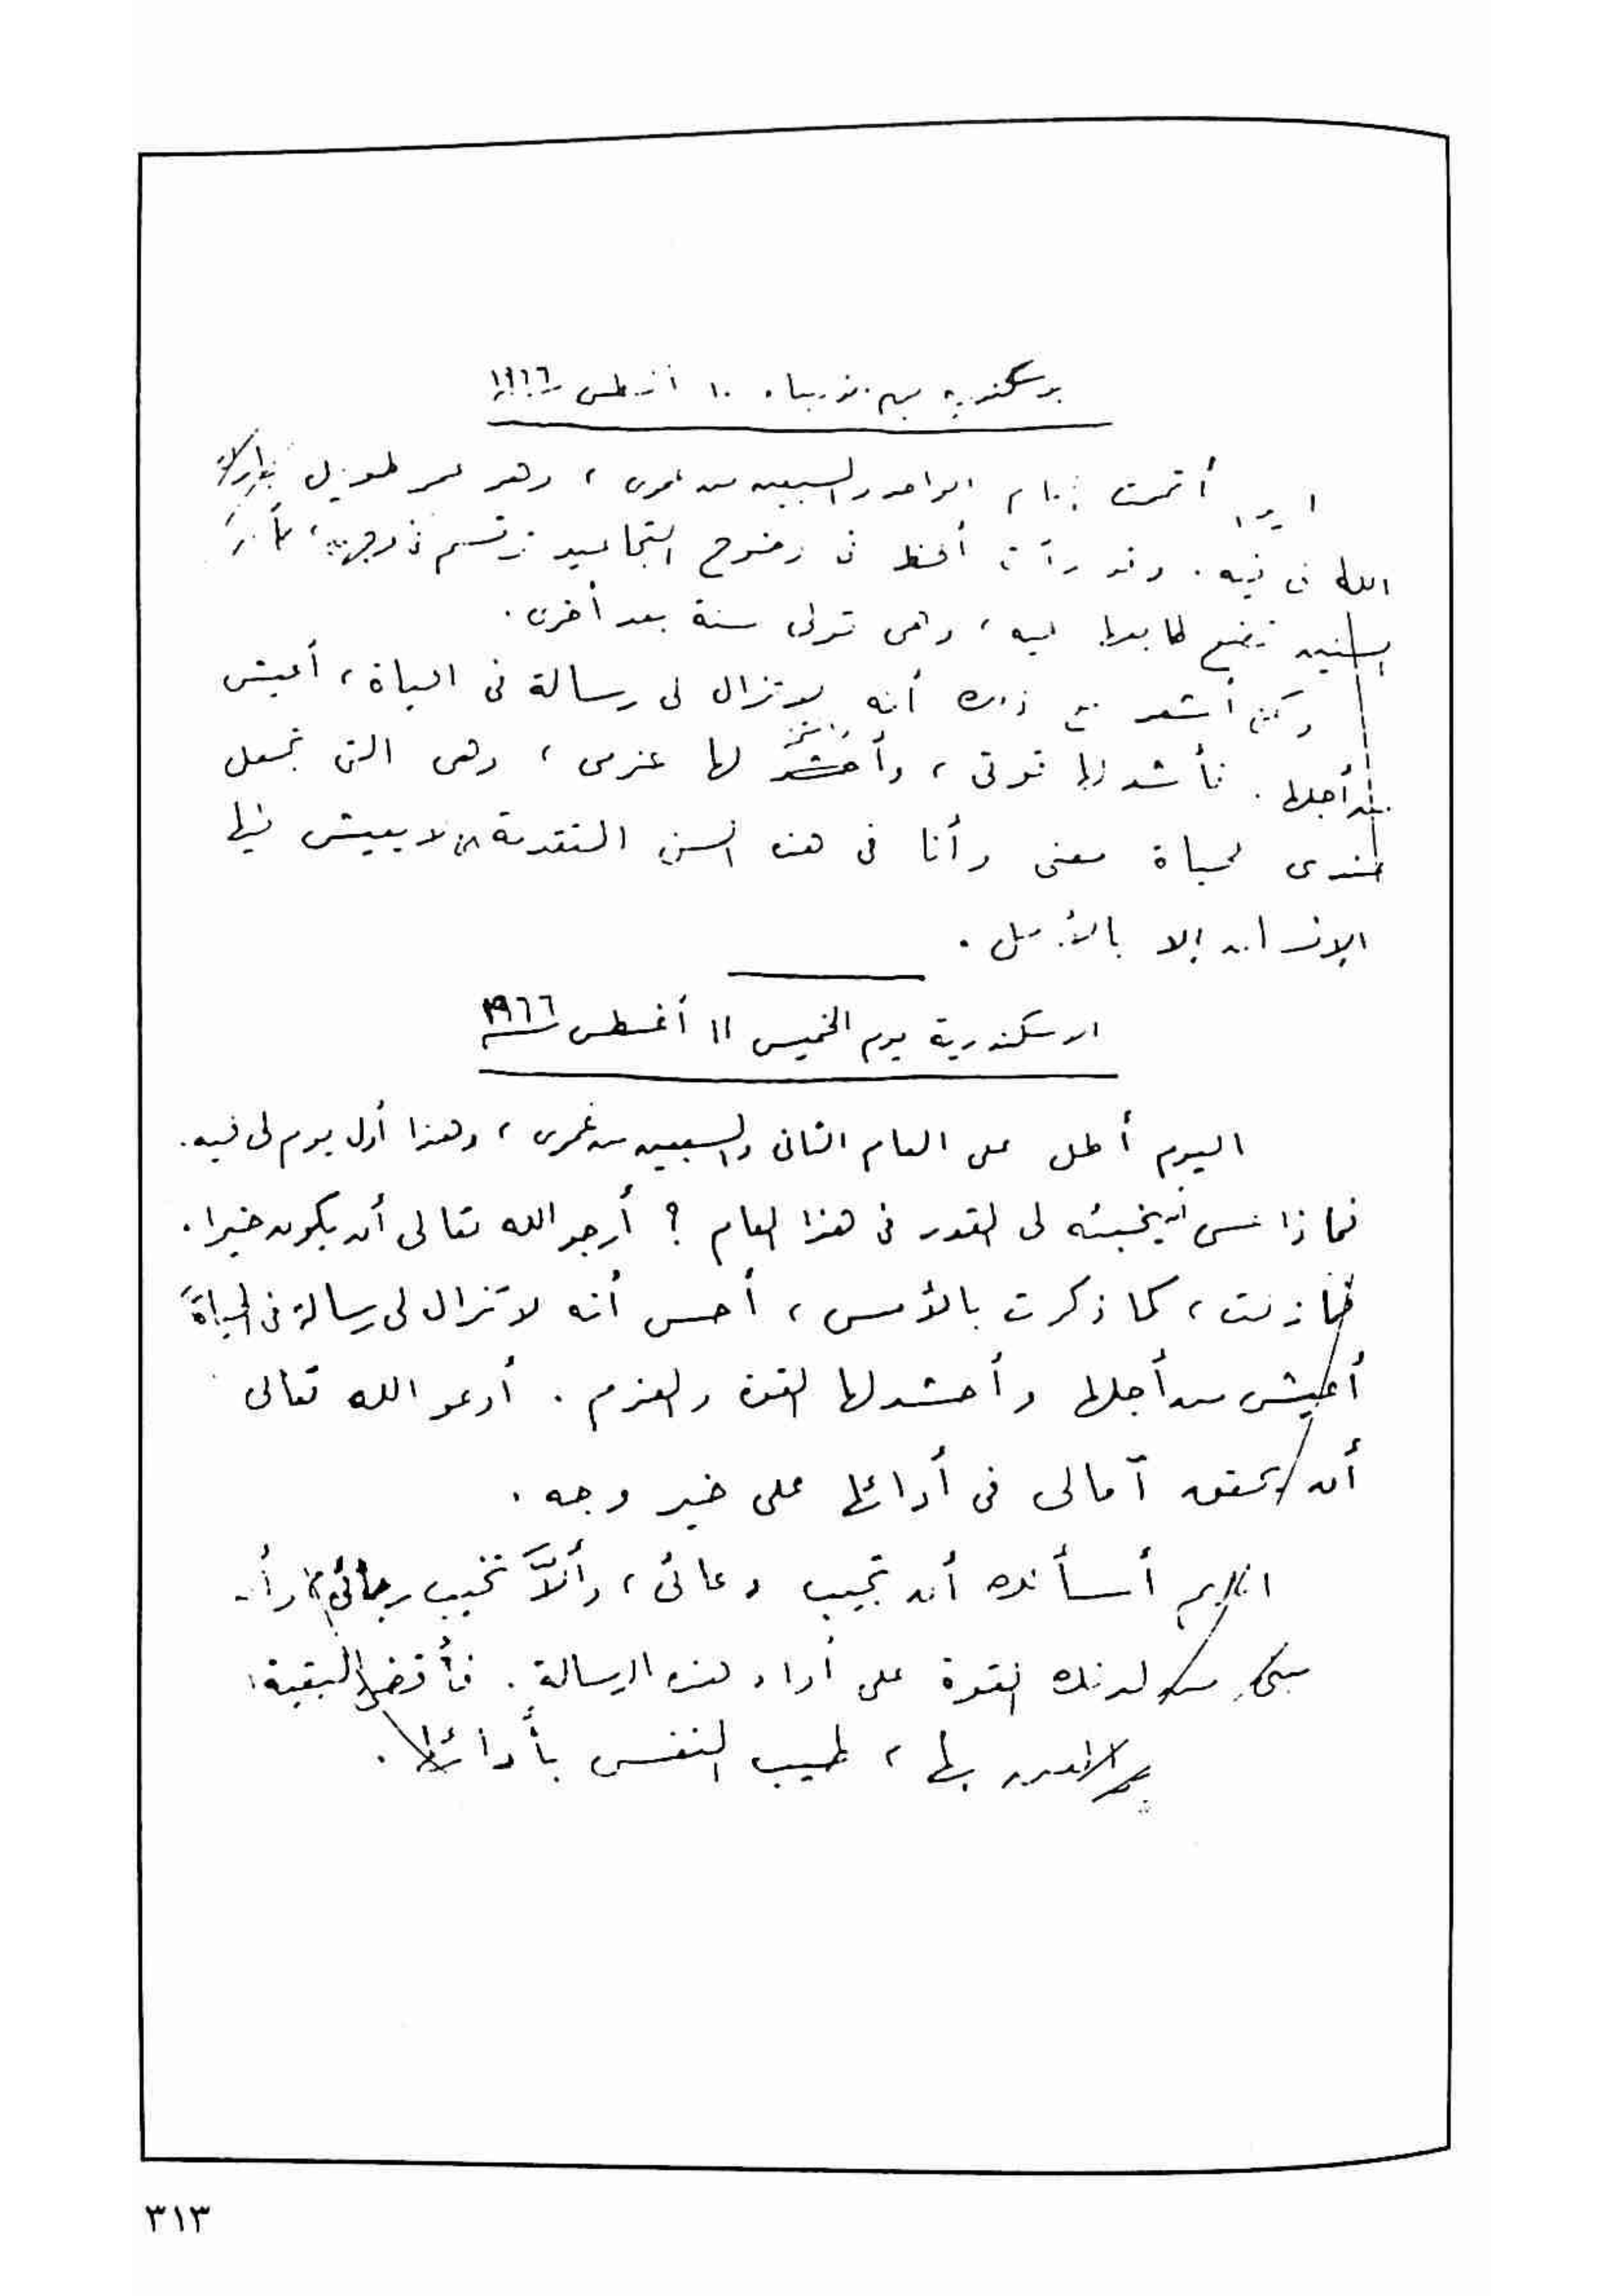 الاسكندرية يوم الأربعاء ١٠ أغسطس ١٩٦٦
اليوم أتممت العام الواحد والسبعين من عمرى ، وهو عمر طويل بارك
الله لى فيه . وقد بدأت ألحظ فى وضوح التجاعيد ترتسم فى وجهى ،
السنين تضع طابعها عليه ، وهى تولى سنة بعد أخرى .
ولكنى أشعر مع ذلك أنه لا تزال لى رسالة فى الحياة ، أعيش
من أجلها . فأشد لها قوتى ، وأحشد لها عزمى ، وهى التى تجعل
عندى للحياة معنى وأنا فى هذه السن المتقدمة لا يعيش فيها
الإنسان إلا بالأمل .
الاسكندرية يوم الخميس ١١ أغسطس ١٩٦٦
اليوم أطل على العام الثانى والسبعين من عمرى ، وهذا أول يوم لى فيه .
فماذا عسى أن يخبئه لى القدر فى هذا العام ؟ أرجو الله تعالى أن يكون خيرا .
فما زلت ، كما ذكرت بالأمس ، أحس أنه لا تزال لى رسالة فى الحياة
أعيش من أجلها وأحشد لها القوة والعزم . أدعو الله تعالى
أن يحقق آمالى فى أدائها على خير وجه .
اللهم أسألك أن تجيب دعائى ، وألاَّ تخيب رجائى ، وأن
من لدنك القوة على أداء هذه الرسالة . فأقضى البقية
بها ، طيب النفس بأدائها .
٣١٣